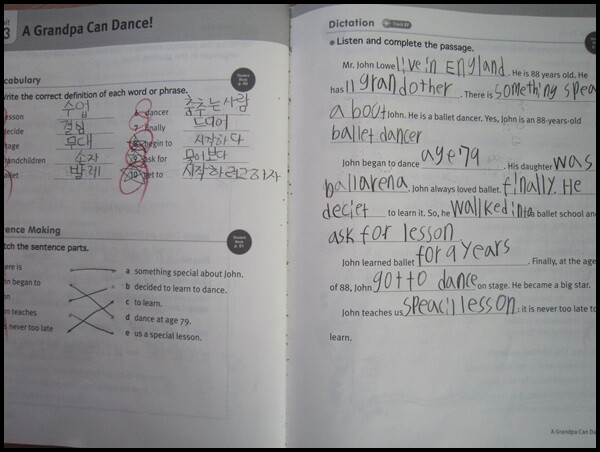 3 A Grandpa Can Dance!
cabulary
Write the correct definition of each word or phrase.
esson 수업
ecide 결심
tage 무대
andchildren 손자
allet 발레
6 dancer 춤추는사람
7 finally 드디어
8 begin to 시작하다
9 ask for 물어보다
10 get to 시작하려고하자
ence Making
tch the sentence parts.
ere is
hn began to
hn
hn teaches
s never too late
a something special about John.
b decided to learn to dance.
c to learn.
d dance at age 79.
e us a special lesson.
Dictation Track 87
Listen and complete the passage.
Mr. John Lowe live in England. He is 88 years old. He
has 11 grandother. There is something spea
about John. He is a ballet dancer. Yes, John is an 88-years-old
ballet dancer
John began to dance age 79. His daughter was
ballarena. John always loved ballet. finally. He
deciet to learn it. So, he wallked into a ballet school and
ask for lesson
John learned ballet for 9 years. Finally, at the age
of 88, John got to dance on stage. He became a big star.
John teaches us speacil lesson: it is never too late to
learn.
A Grandpa Can Da